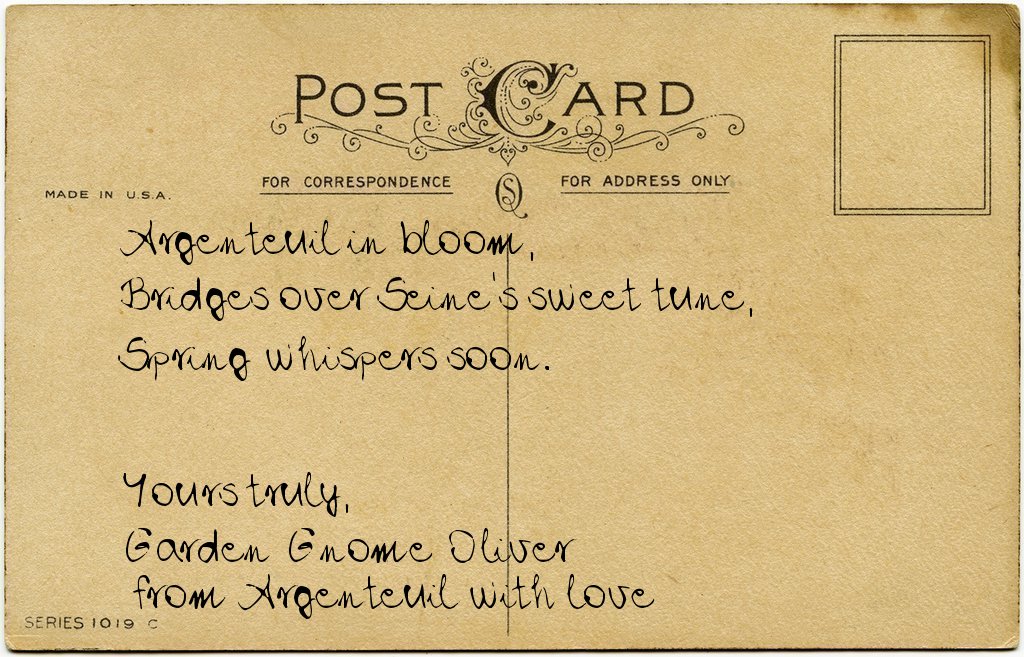 POST CARD
FOR CORRESPONDENCE
FOR ADDRESS ONLY
MADE IN U.S.A.
Argenteuil in bloom,
Bridges over Seine's sweet tune,
Spring whispers soon.
Yours truly,
Garden Gnome Oliver
from Argenteuil with love
SERIES 1019 C